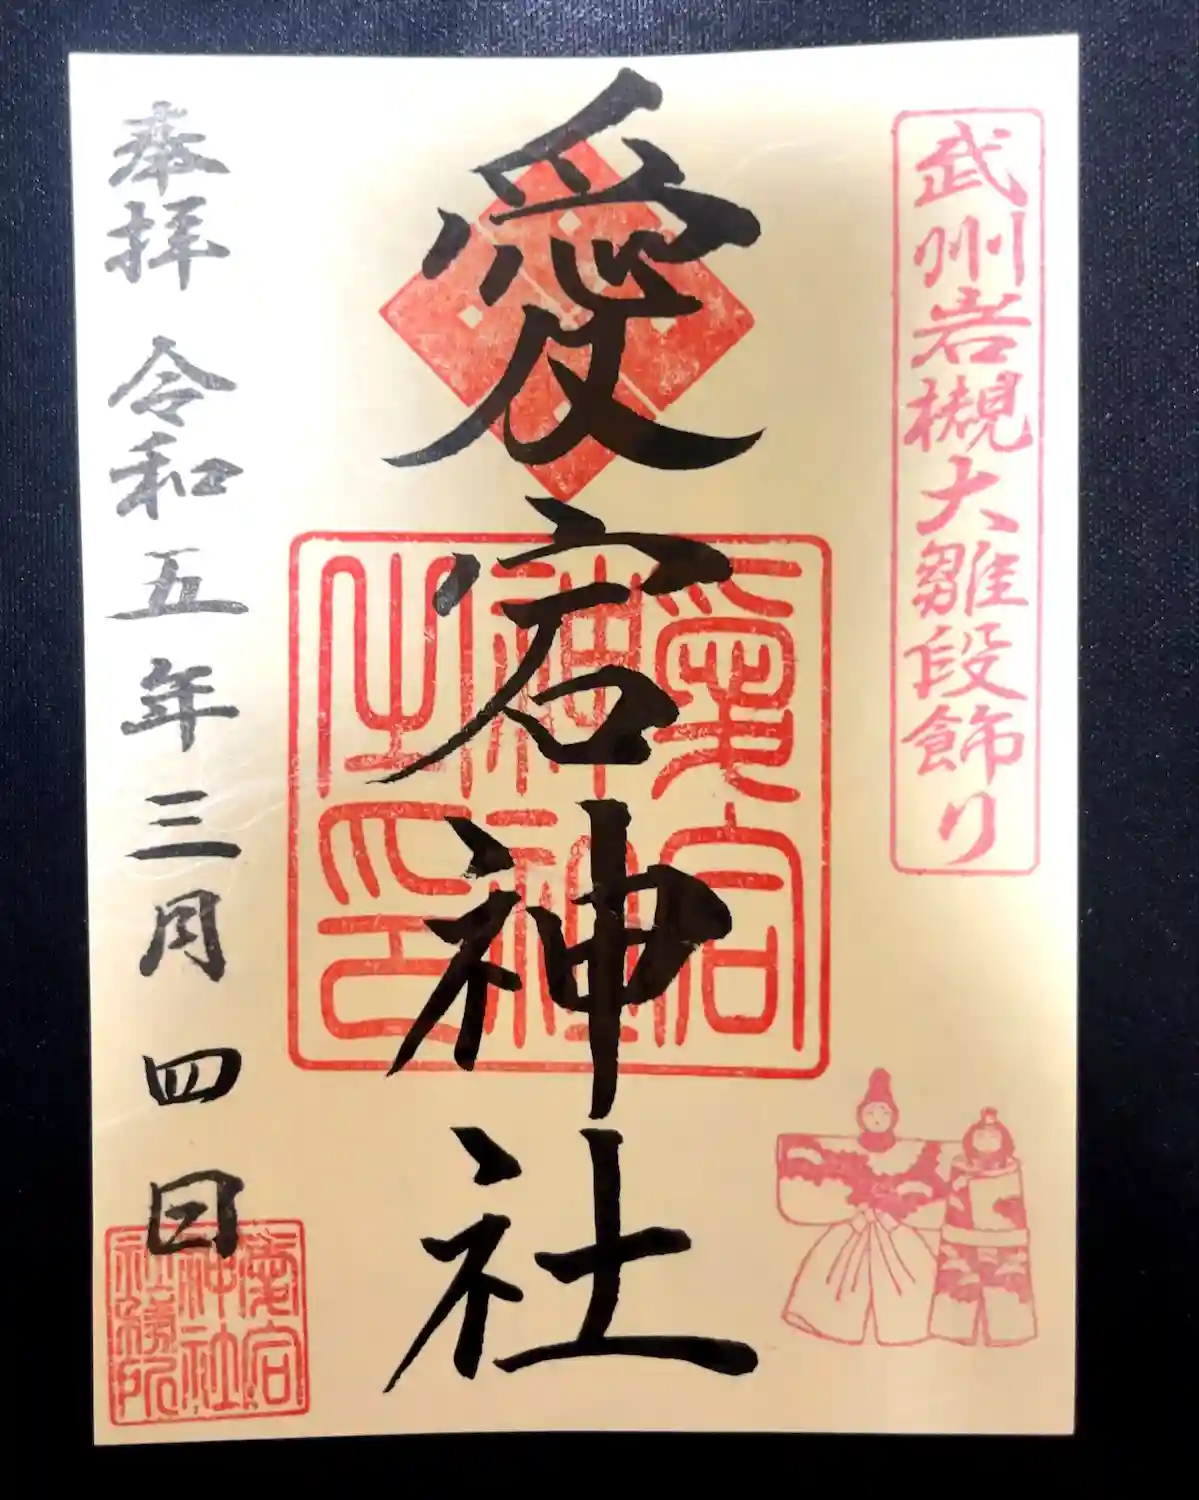 武州岩槻大雛段飾り
愛宕神社
愛宕
神社
之印
奉拝 令和五年三月四日
愛宕
神社
社務所